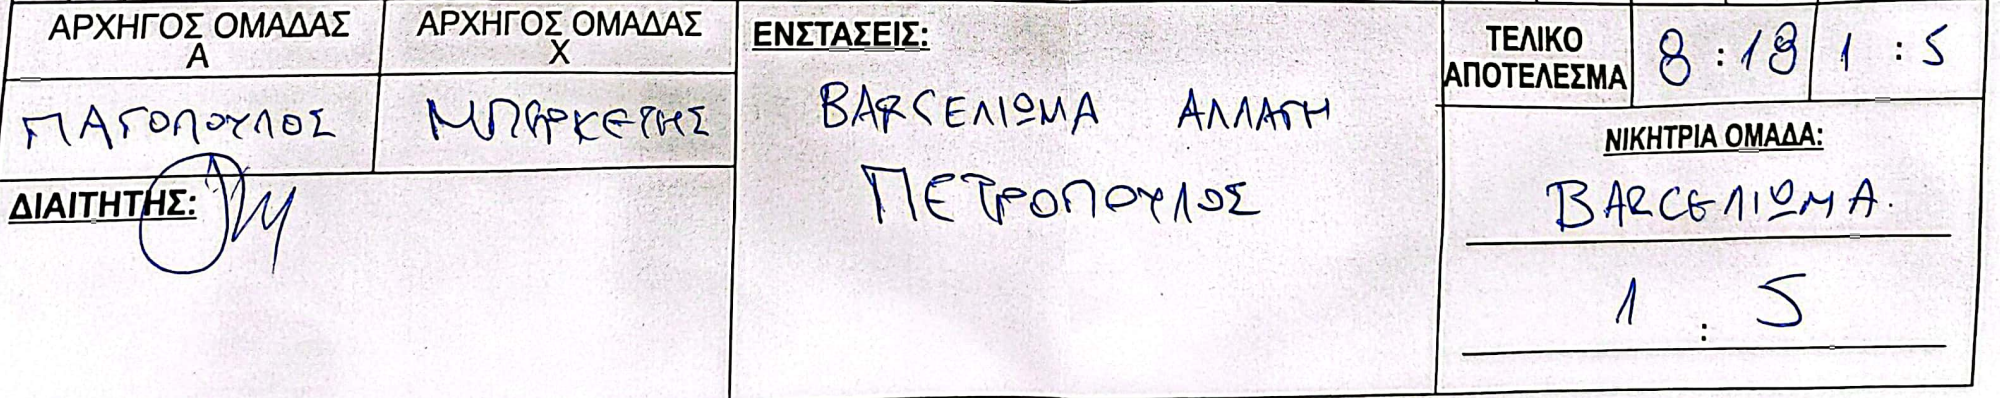 ΑΡΧΗΓΟΣ ΟΜΑΔΑΣ
Α
ΑΡΧΗΓΟΣ ΟΜΑΔΑΣ
Χ
ΠΑΓΟΠΟΥΛΟΣ
ΜΠΑΡΚΕΤΗΣ
ΔΙΑΙΤΗΤΗΣ:
ΕΝΣΤΑΣΕΙΣ:
BARCΕΛΙΩΜΑ ΑΛΛΑΓΗ
ΠΕΤΡΟΠΟΥΛΟΣ
ΤΕΛΙΚΟ
ΑΠΟΤΕΛΕΣΜΑ
8 : 18
1 : 5
ΝΙΚΗΤΡΙΑ ΟΜΑΔΑ:
BARCΕΛΙΩΜΑ.
1 : 5